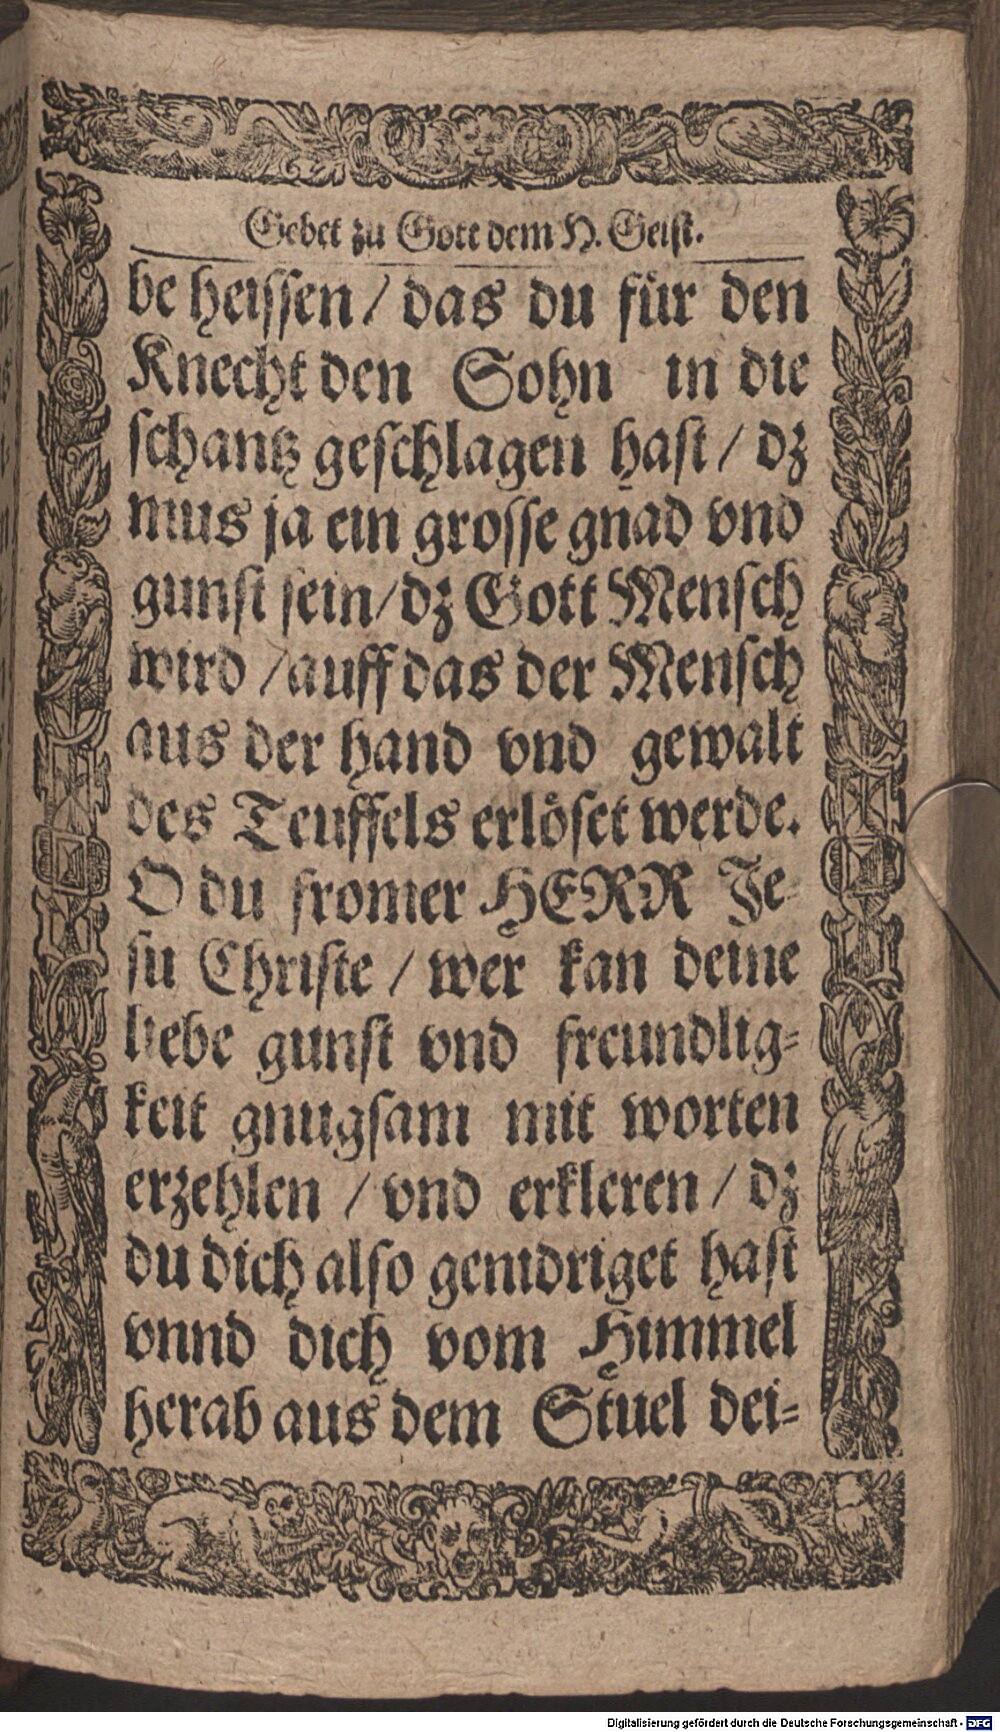 Gebet zu Gott dem H. Geist.
be heissen / das du für den
Knecht den Sohn in die
schantz geschlagen hast / dz
mus ja ein grosse gnad vnd
gunst sein / dz Gott Mensch
wird / auff das der Mensch
aus der hand vnd gewalt
des Teuffels erlöset werde.
O du fromer HERR Je-
su Christe / wer kan deine
liebe gunst vnd freundlig-
keit gnugsam mit worten
erzehlen / vnd erkleren / dz
du dich also genidriget hast
vnnd dich vom Himmel
herab aus dem Stuel dei-
Digitalisierung gefördert durch die Deutsche Forschungsgemeinschaft - DFG